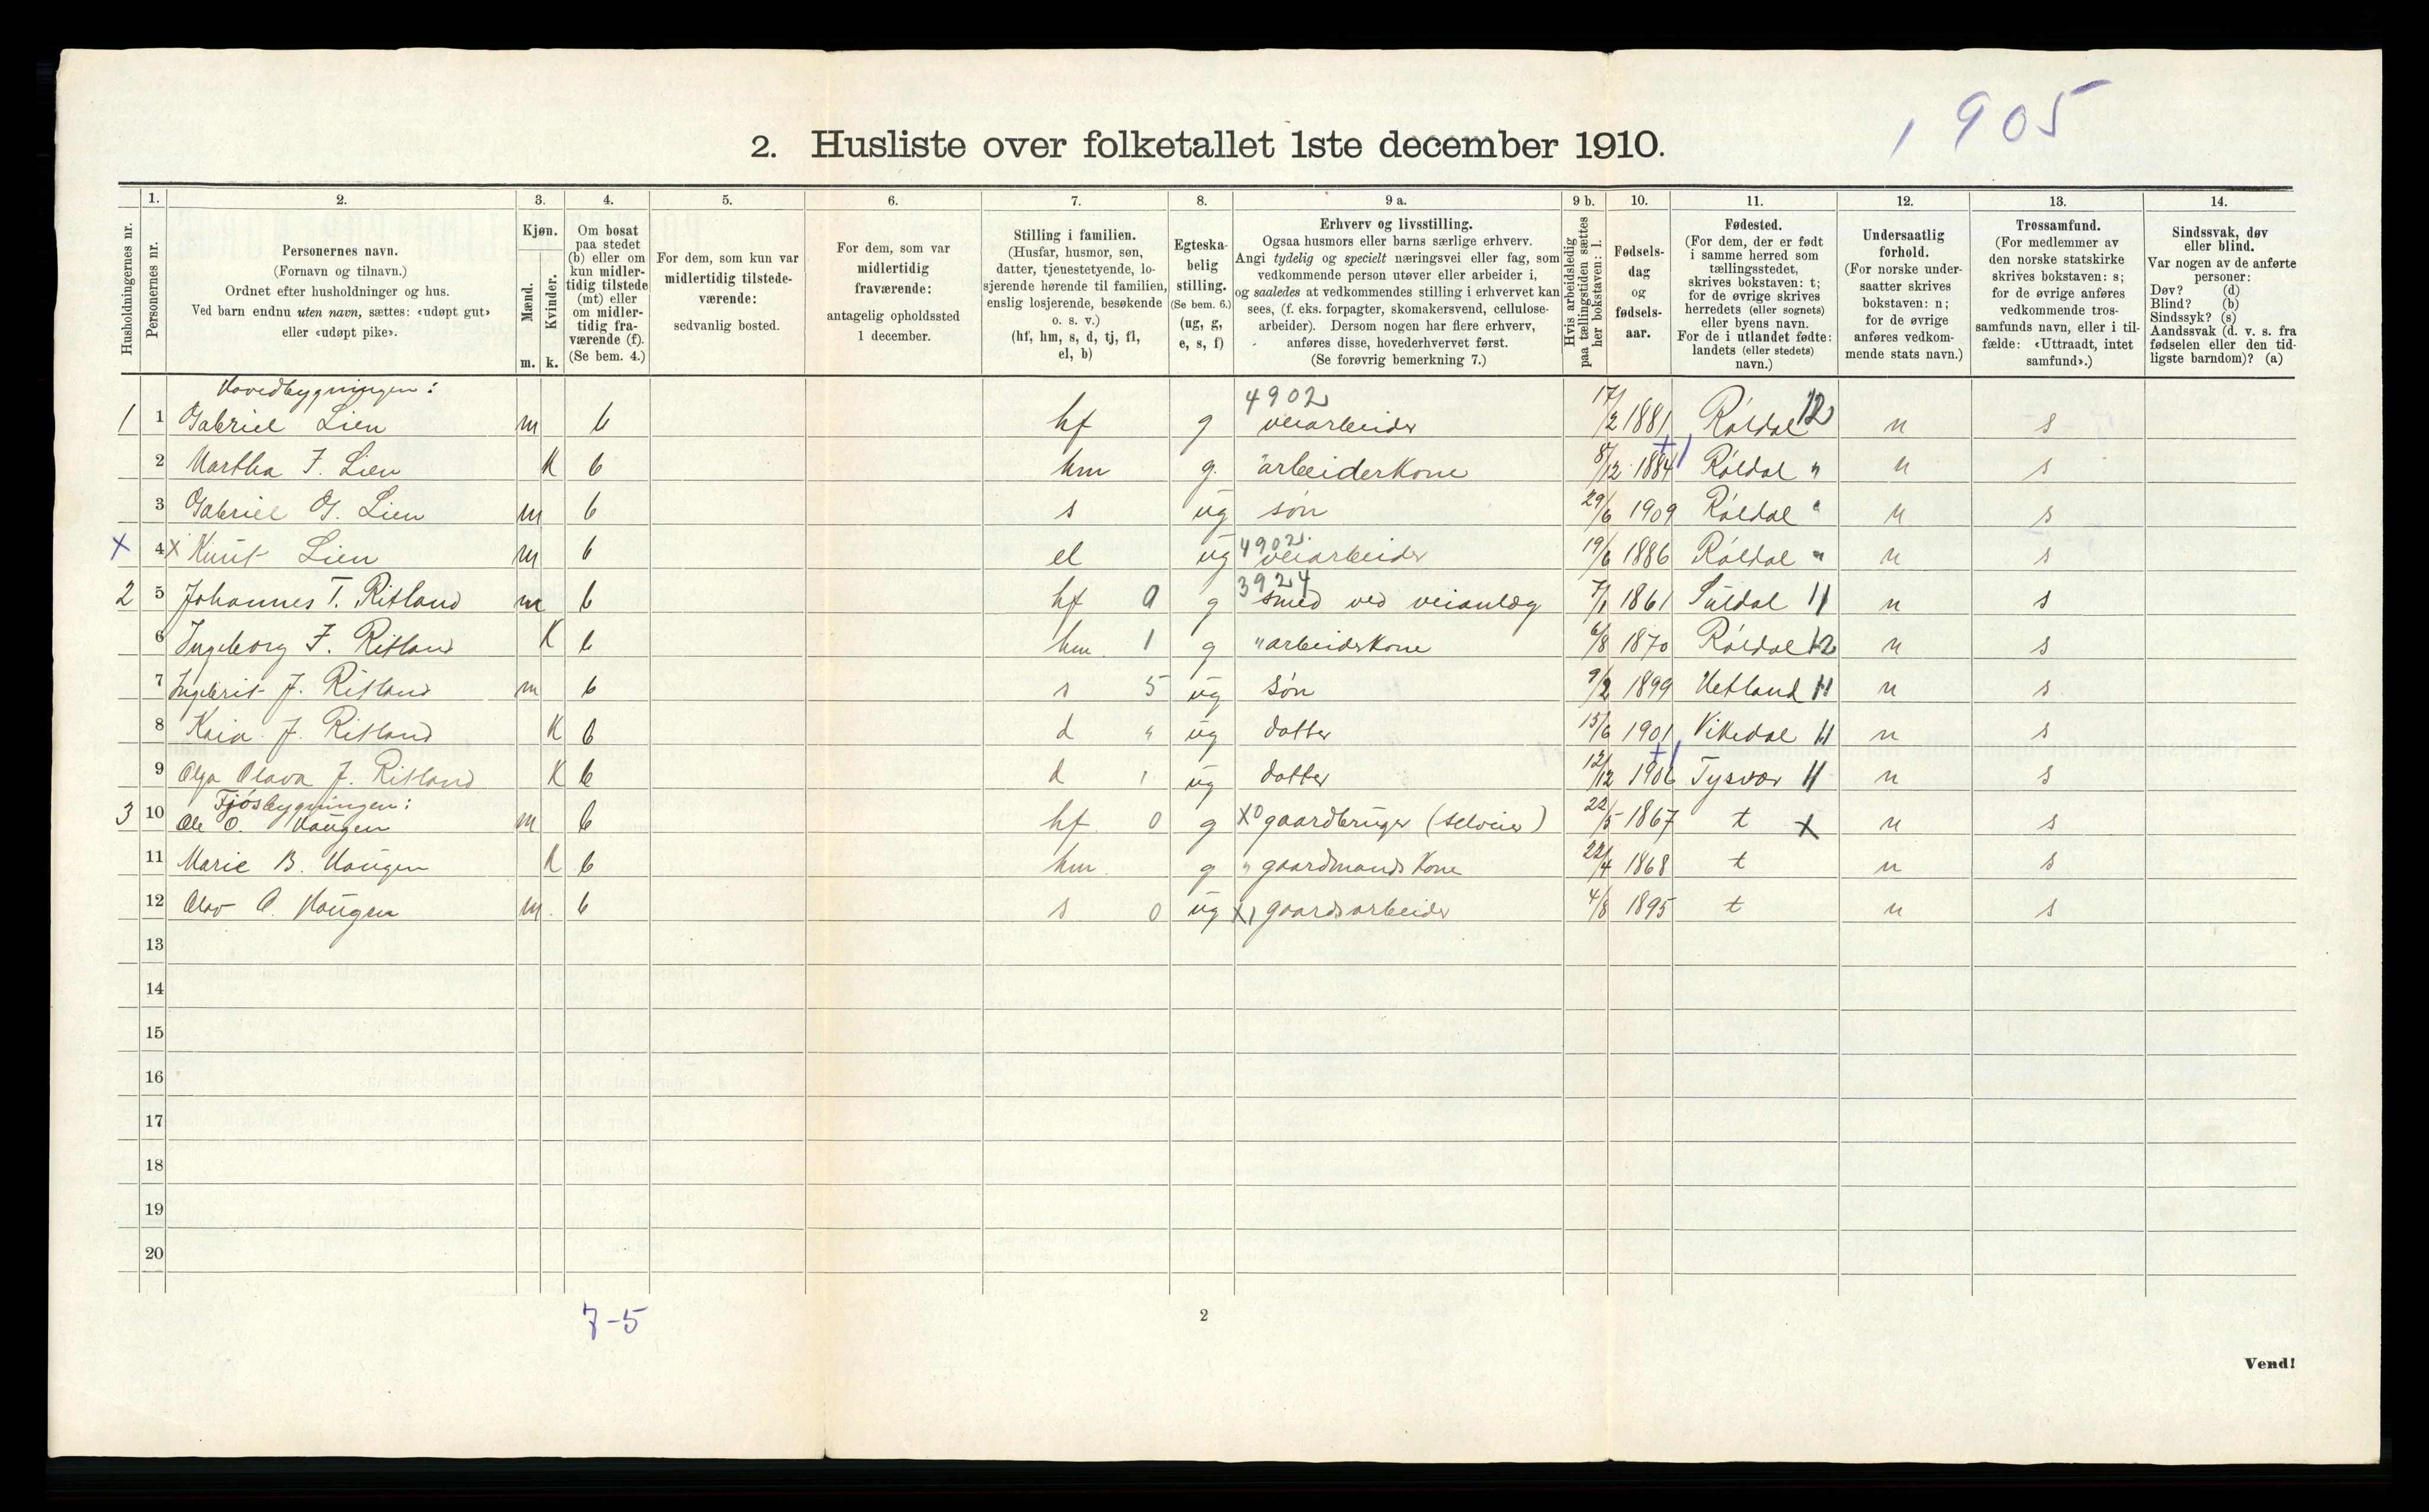 1905
2. Husliste over folketallet 1ste december 1910.
Husholdningernes nr.
1. Personernes nr.
2. Personernes navn.
(Fornavn og tilnavn.)
Ordnet efter husholdninger og hus.
Ved barn endnu uten navn, sættes: «udøpt gut»
eller «udøpt pike».
3. Kjøn.
Mænd. m.
Kvinder. k.
4. Om bosat
paa stedet
(b) eller om
kun midler-
tidig tilstede
(mt) eller
om midler-
tidig fra-
værende (f).
(Se bem. 4.)
5. For dem, som kun var
midlertidig tilstede-
værende:
sedvanlig bosted.
6. For dem, som var
midlertidig
fraværende:
antagelig opholdssted
1 december.
7. Stilling i familien.
(Husfar, husmor, søn,
datter, tjenestetyende, lo-
sjerende hørende til familien,
enslig losjerende, besøkende
o. s. v.)
(hf, hm, s, d, tj, fl,
el, b)
8. Egteska-
belig
stilling.
(Se bem. 6.)
(ug, g,
e, s, f)
9 a. Erhverv og livsstilling.
Ogsaa husmors eller barns særlige erhverv.
Angi tydelig og specielt næringsvei eller fag, som
vedkommende person utøver eller arbeider i,
og saaledes at vedkommendes stilling i erhvervet kan
sees, (f. eks. forpagter, skomakersvend, cellulose-
arbeider). Dersom nogen har flere erhverv,
anføres disse, hovederhvervet først.
(Se forøvrig bemerkning 7.)
9 b. Hvis arbeidsledig
paa tællingstiden sættes
her bokstaven: l.
10. Fødsels-
dag
og
fødsels-
aar.
11. Fødested.
(For dem, der er født
i samme herred som
tællingsstedet,
skrives bokstaven: t;
for de øvrige skrives
herredets (eller sognets)
eller byens navn.
For de i utlandet fødte:
landets (eller stedets)
navn.)
12. Undersaatlig
forhold.
(For norske under-
saatter skrives
bokstaven: n;
for de øvrige
anføres vedkom-
mende stats navn.)
13. Trossamfund.
(For medlemmer av
den norske statskirke
skrives bokstaven: s;
for de øvrige anføres
vedkommende tros-
samfunds navn, eller i til-
fælde: «Uttraadt, intet
samfund».)
14. Sindssvak, døv
eller blind.
Var nogen av de anførte
personer:
Døv? (d)
Blind? (b)
Sindssyk? (s)
Aandssvak (d. v. s. fra
fødselen eller den tid-
ligste barndom)? (a)
Hovedbygningen:
1 1 Gabriel Lien m b hf g 4902 veiarbeider 17/2 1881 Røldal 12 n s
2 Martha J. Lien K b hm g. " arbeiderkone 8/12 1884 +1 Røldal " n s
3 Gabriel G. Lien m b s ug søn 29/6 1909 Røldal " n s
x 4 x Knut Lien m b el ug 4902 veiarbeider 19/6 1886 Røldal " n s
2 5 Johannes T. Ritland m b hf 0 g 3924 smed ved veianlæg 7/1 1861 Suldal 11 n s
6 Ingeborg J. Ritland K b hm. 1 g " arbeiderkone 6/8 1870 Røldal 12 n s
7 Ingebrit J. Ritland m b s 5 ug søn 9/2 1899 Hetland 11 n s
8 Kaia J. Ritland K b d " ug datter 15/6 1901 Vikedal 11 n s
9 Olga Olava J. Ritland K b d 1 ug datter 12/12 1906 +1 Tysvær 11 n s
Fjøsbygningen:
3 10 Ole O. Haugen m b hf. 0 g x0 gaardbruger (selveier) 22/5 1867 t x n s
11 Marie B. Haugen K b hm. g " gaardmands kone 22/4 1868 t n s
12 Olav O. Haugen m. b s 0 ug x1 gaardsarbeider 4/8 1895 t n s
13
14
15
16
17
18
19
20
7-5
2
Vend!